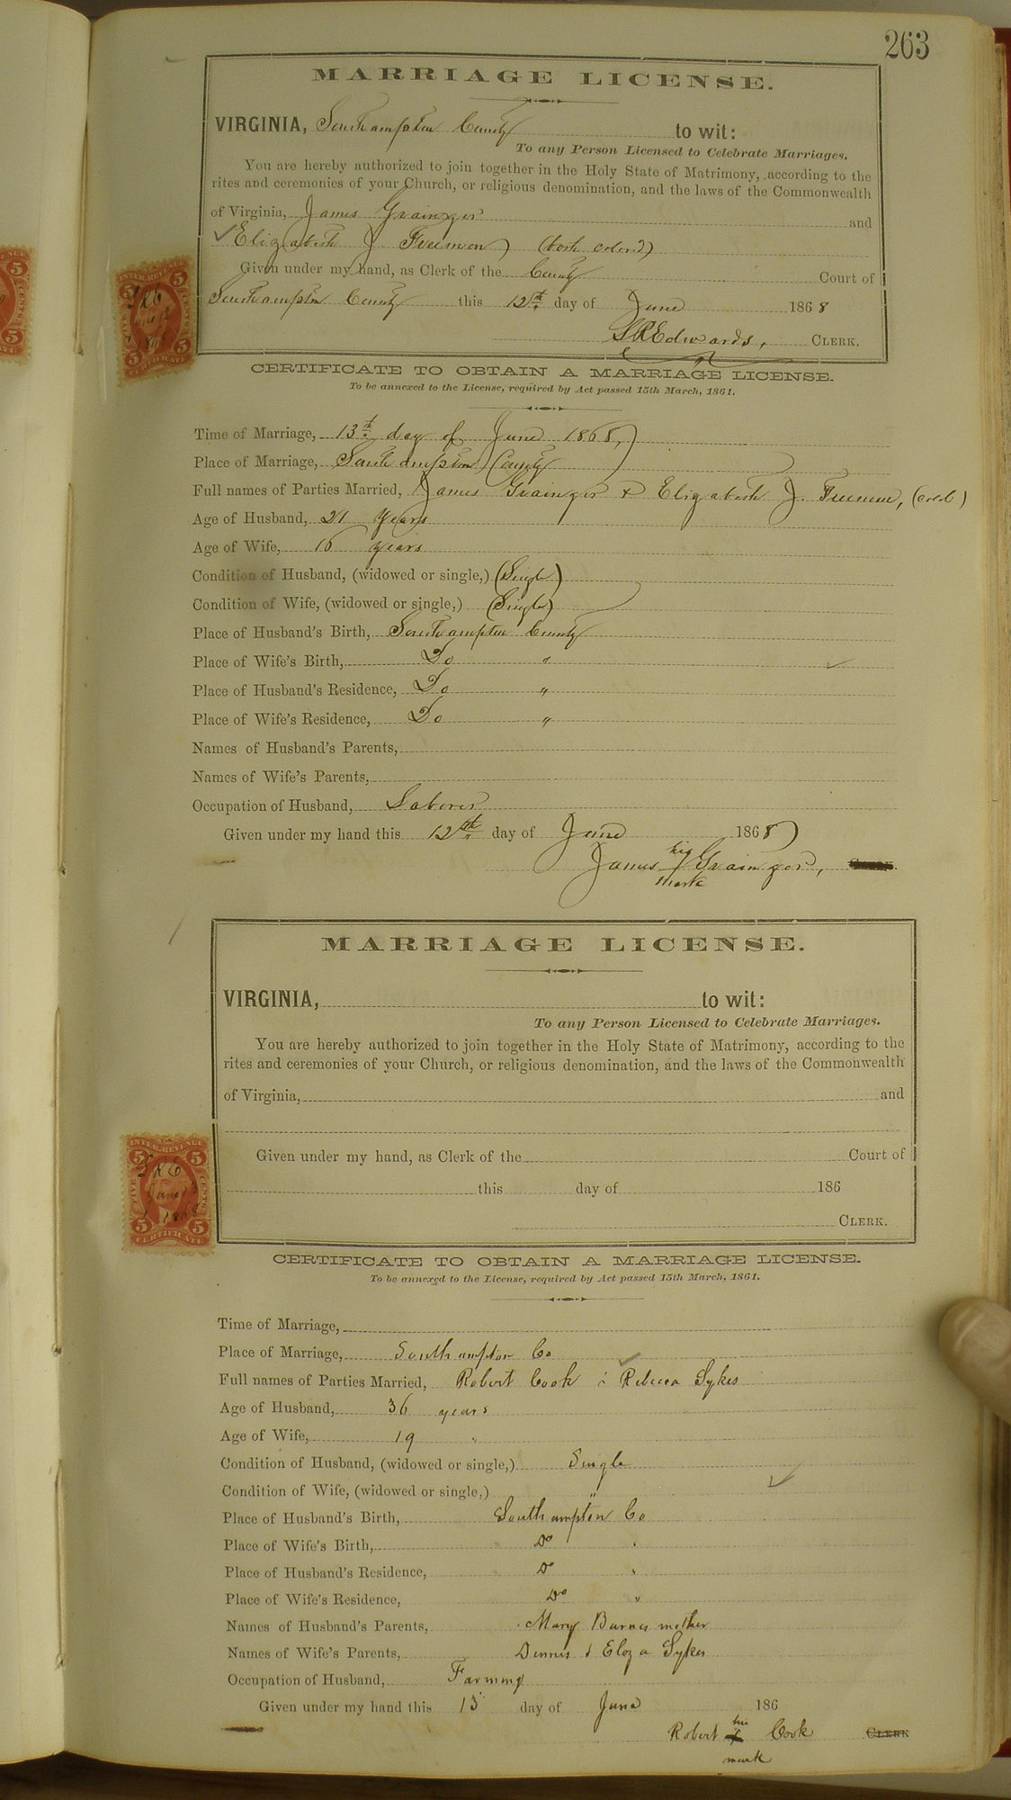 263
MARRIAGE LICENSE.
VIRGINIA, Southampton County to wit:
To any Person Licensed to Celebrate Marriages.
You are hereby authorized to join together in the Holy State of Matrimony, according to the
rites and ceremonies of your Church, or religious denomination, and the laws of the Commonwealth
of Virginia, James Grainger and
Elizabeth J Freeman (both colored)
Given under my hand, as Clerk of the County Court of
Southampton County this 12th day of June 1868
LREdwards, CLERK.
CERTIFICATE TO OBTAIN A MARRIAGE LICENSE.
To be annexed to the License, required by Act passed 15th March, 1861.
Time of Marriage, 13th day of June 1868,
Place of Marriage, Southampton County
Full names of Parties Married, James Grainger & Elizabeth J. Freeman, (cold)
Age of Husband, 21 Years
Age of Wife, 16 years
Condition of Husband, (widowed or single,) (Single)
Condition of Wife, (widowed or single,) (Single)
Place of Husband's Birth, Southampton County
Place of Wife's Birth, Do "
Place of Husband's Residence, Do "
Place of Wife's Residence, Do "
Names of Husband's Parents,
Names of Wife's Parents,
Occupation of Husband, Laborer
Given under my hand this 12th day of June 1868
James his Grainger,
mark
MARRIAGE LICENSE.
VIRGINIA, to wit:
To any Person Licensed to Celebrate Marriages.
You are hereby authorized to join together in the Holy State of Matrimony, according to the
rites and ceremonies of your Church, or religious denomination, and the laws of the Commonwealth
of Virginia, and
Given under my hand, as Clerk of the Court of
this day of 186
CLERK.
CERTIFICATE TO OBTAIN A MARRIAGE LICENSE.
To be annexed to the License, required by Act passed 15th March, 1861.
Time of Marriage,
Place of Marriage, Southampton Co
Full names of Parties Married, Robert Cook & Rebecca Sykes
Age of Husband, 36 years
Age of Wife, 19 "
Condition of Husband, (widowed or single,) Single
Condition of Wife, (widowed or single,) "
Place of Husband's Birth, Southampton Co
Place of Wife's Birth, Do "
Place of Husband's Residence, Do "
Place of Wife's Residence, Do "
Names of Husband's Parents, Mary Barnes mother
Names of Wife's Parents, Dennis & Eliza Sykes
Occupation of Husband, Farming
Given under my hand this 15 day of June 186
Robert his X Cook CLERK
mark
INTER. REVENUE
5 5
FIVE CENTS
5 5
CERTIFICATE
INTER. REVENUE
5 5
FIVE CENTS
5 5
CERTIFICATE